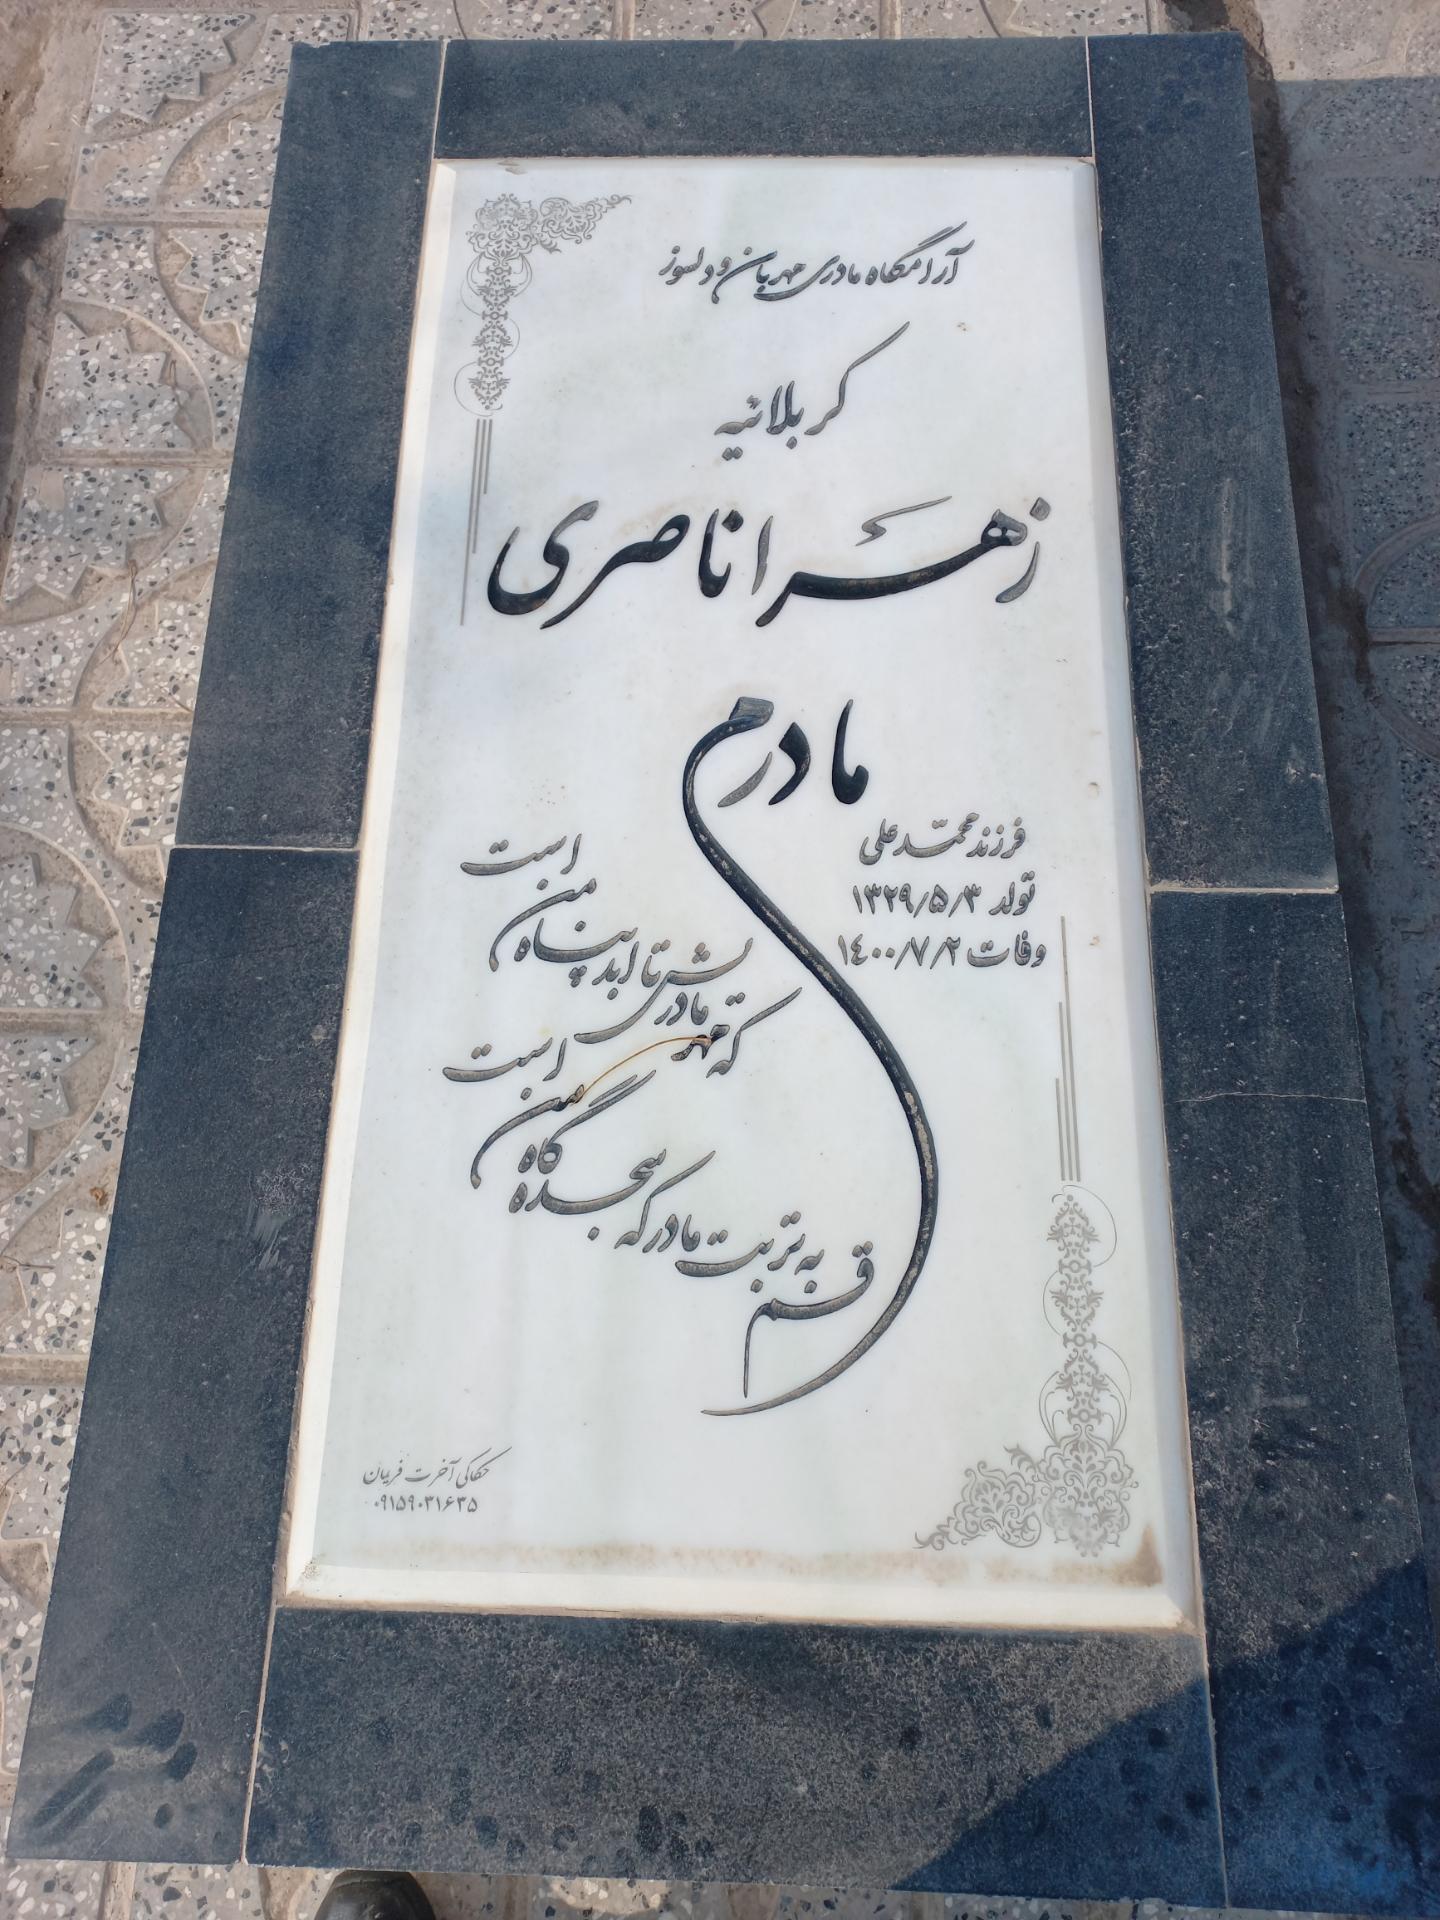 آرامگاه مادری مهربان و دلسوز
کربلائیه
زهرا ناصری
مادرم
فرزند محمّد علی
تولد ۱۳۲۹/۵/۳
وفات ۱٤۰۰/۷/۲
قسم به تربت مادر که سجده گاه من است
که مهر مادریش تا ابد پناه من است
حکاکی آخرت فریمان
۰۹۱۵۹۰۳۱۶۳۵